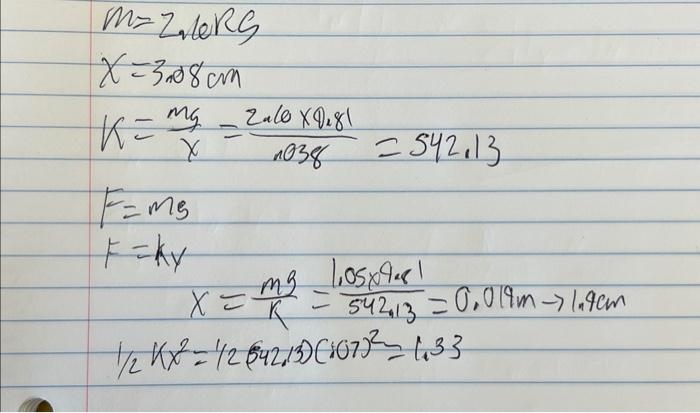 m = 2.10 KG
X = 3.08 cm
K = mg/X = 2.10 x 9.81/.038 = 542.13
F = mg
F = kx
X = mg/K = 1.05x9.81/542.13 = 0.019m → 1.9cm
1/2 KX² = 1/2 (542.13)(.07)² = 1.33